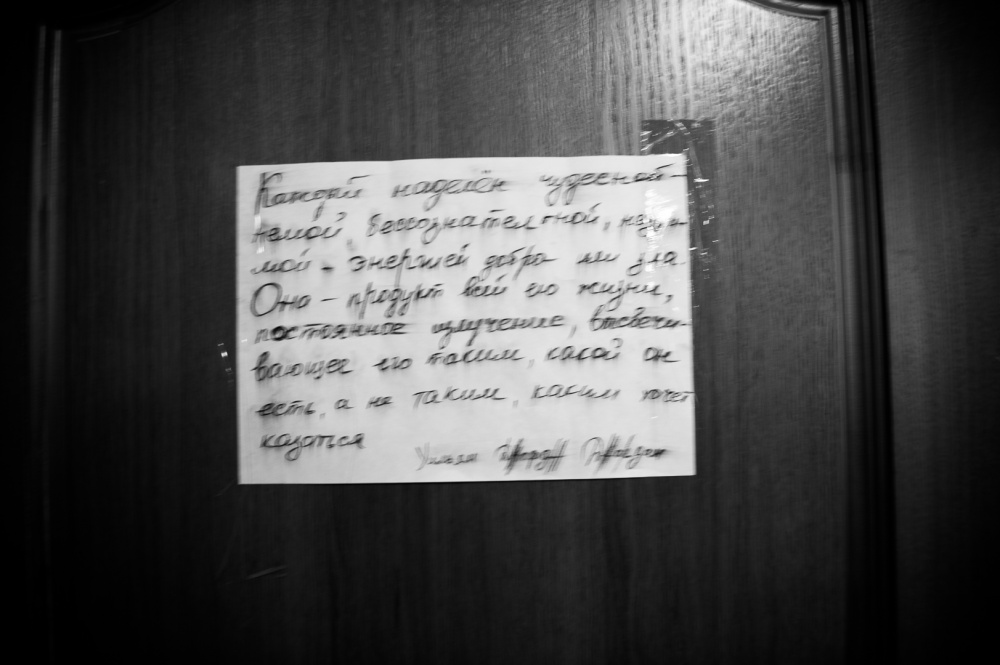 Каждый наделён чудесной -
немой, бессознательной, незри-
мой - энергией добра или зла.
Она - продукт всей его жизни,
постоянное излучение, высвечи-
вающее его таким, какой он
есть, а не таким, каким хочет
казаться
Уильям Джордж Джордан